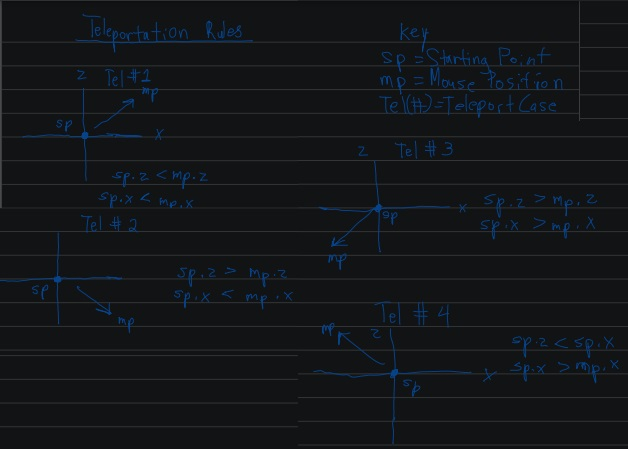 Teleportation Rules
key
sp = Starting Point
mp = Mouse Position
Tel(#) = Teleport Case
Tel #1
z
mp
sp
x
sp.z < mp.z
sp.x < mp.x
Tel #2
sp
mp
sp.z > mp.z
sp.x < mp.x
Tel #3
z
x
sp
mp
sp.z > mp.z
sp.x > mp.x
Tel #4
mp
z
x
sp
sp.z < sp.x
sp.x > mp.x